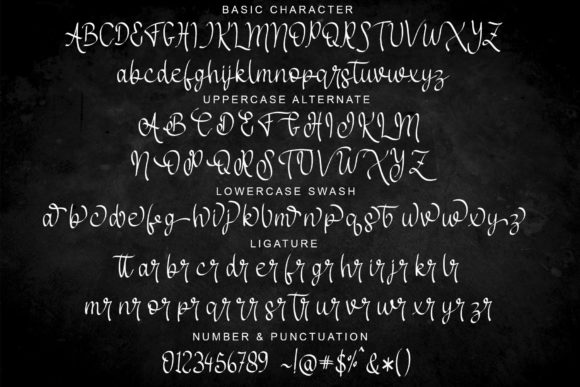 BASIC CHARACTER
ABCDEFGHIJKLMNOPQRSTUVWXYZ
abcdefghijklmnopqrstuvwxyz
UPPERCASE ALTERNATE
ABCDEFGHIJKLM
NOPQRSTUVWXYZ
LOWERCASE SWASH
abcdefghijklmnopqrstuvwxyz
LIGATURE
tt ar br cr dr er fr gr hr ir jr kr lr
mr nr or pr qr rr sr tr ur vr wr xr yr zr
NUMBER & PUNCTUATION
0123456789 ~!@#$%^&*()